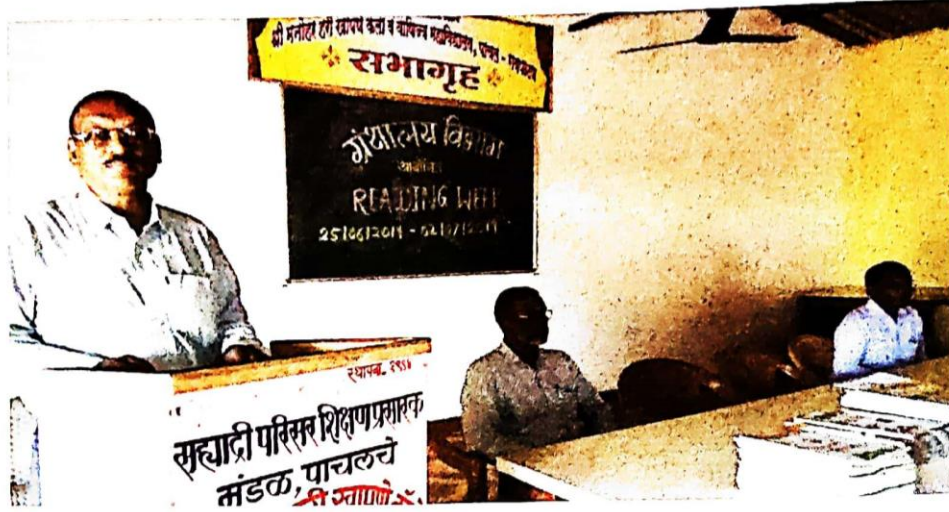 श्री मनोहर हरी खापणे कला व वाणिज्य महाविद्यालय, पाचल -
सभागृह
ग्रंथालय विभाग
READING
25/06/2019 -
स्थापना-
सह्याद्री परिसर शिक्षण प्रसारक
मंडळ, पाचलचे
खापणे